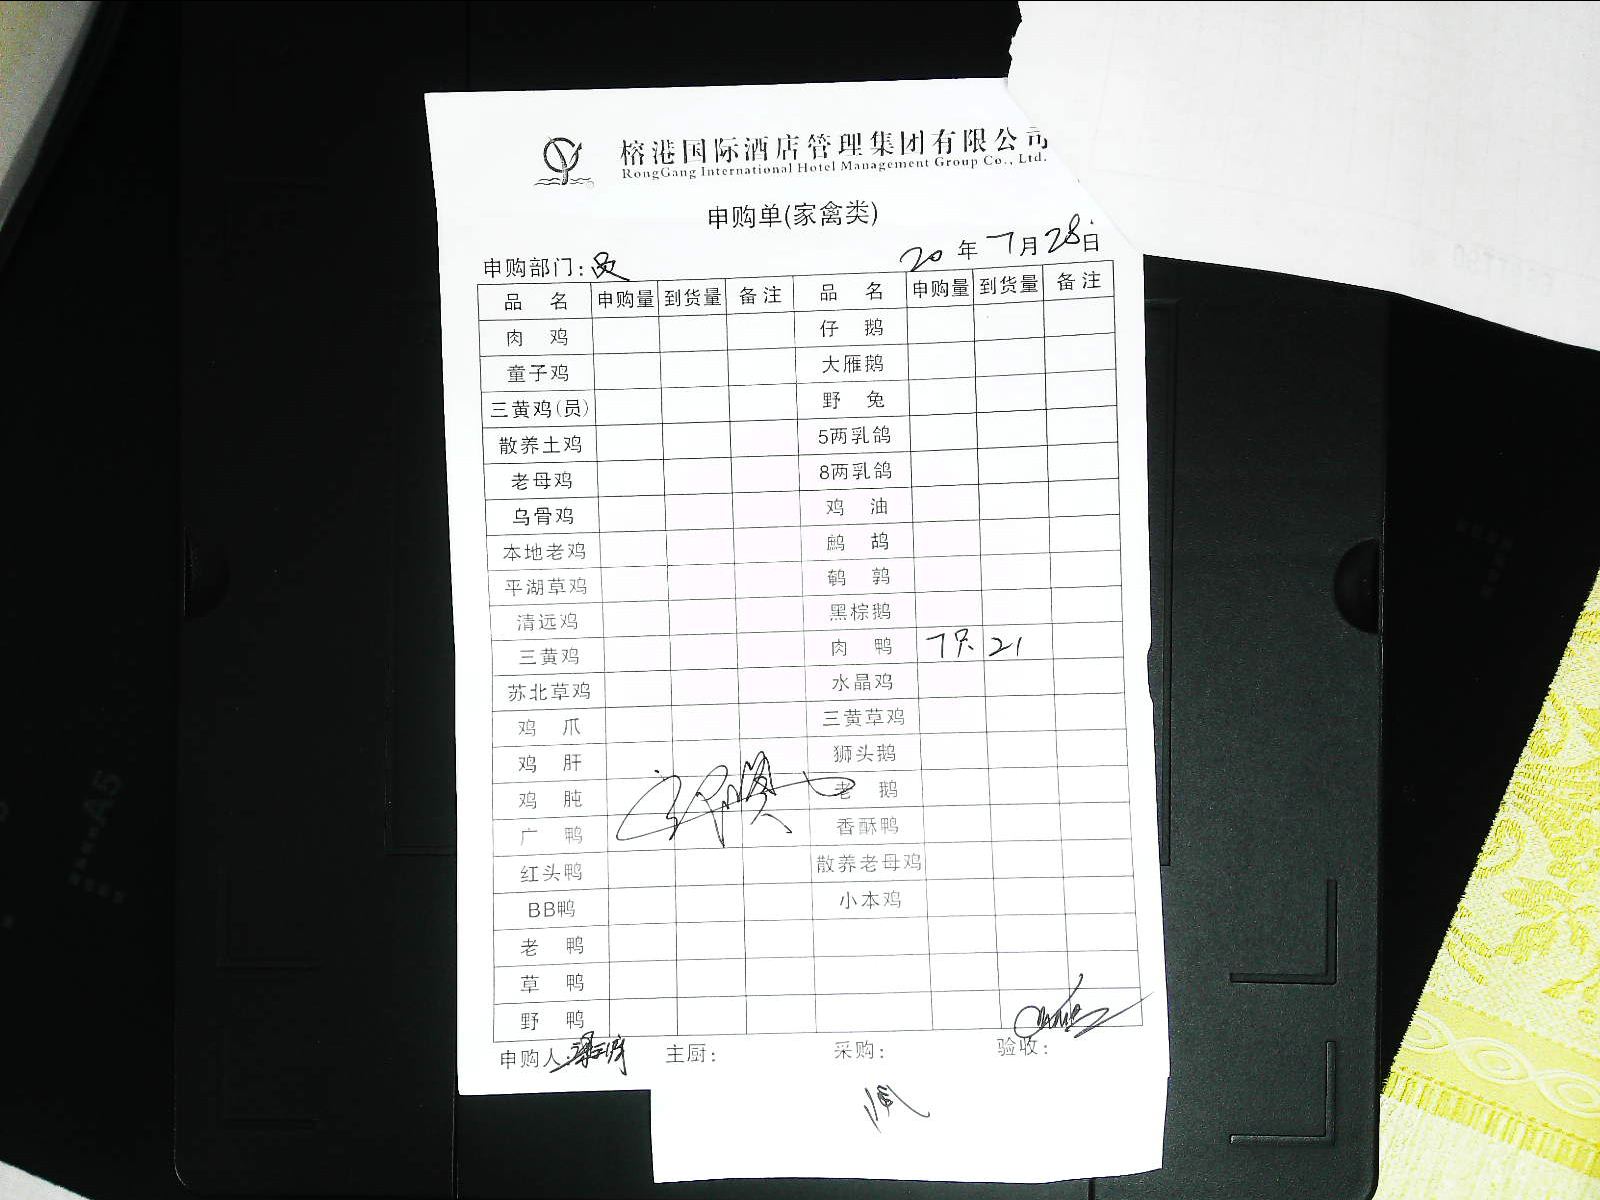 榕港国际酒店管理集团有限公司
RongGang International Hotel Management Group Co., Ltd.
申购单(家禽类)
申购部门：员 20年7月28日
品名 申购量 到货量 备注 品名 申购量 到货量 备注
肉鸡 仔鹅
童子鸡 大雁鹅
三黄鸡(员) 野兔
散养土鸡 5两乳鸽
老母鸡 8两乳鸽
乌骨鸡 鸡油
本地老鸡 鹧鸪
平湖草鸡 鹌鹑
清远鸡 黑棕鹅
三黄鸡 肉鸭 7只 21
苏北草鸡 水晶鸡
鸡爪 三黄草鸡
鸡肝 狮头鹅
鸡肫 老鹅
广鸭 香酥鸭
红头鸭 散养老母鸡
BB鸭 小本鸡
老鸭
草鸭
野鸭
申购人: 主厨: 采购: 验收:
A5